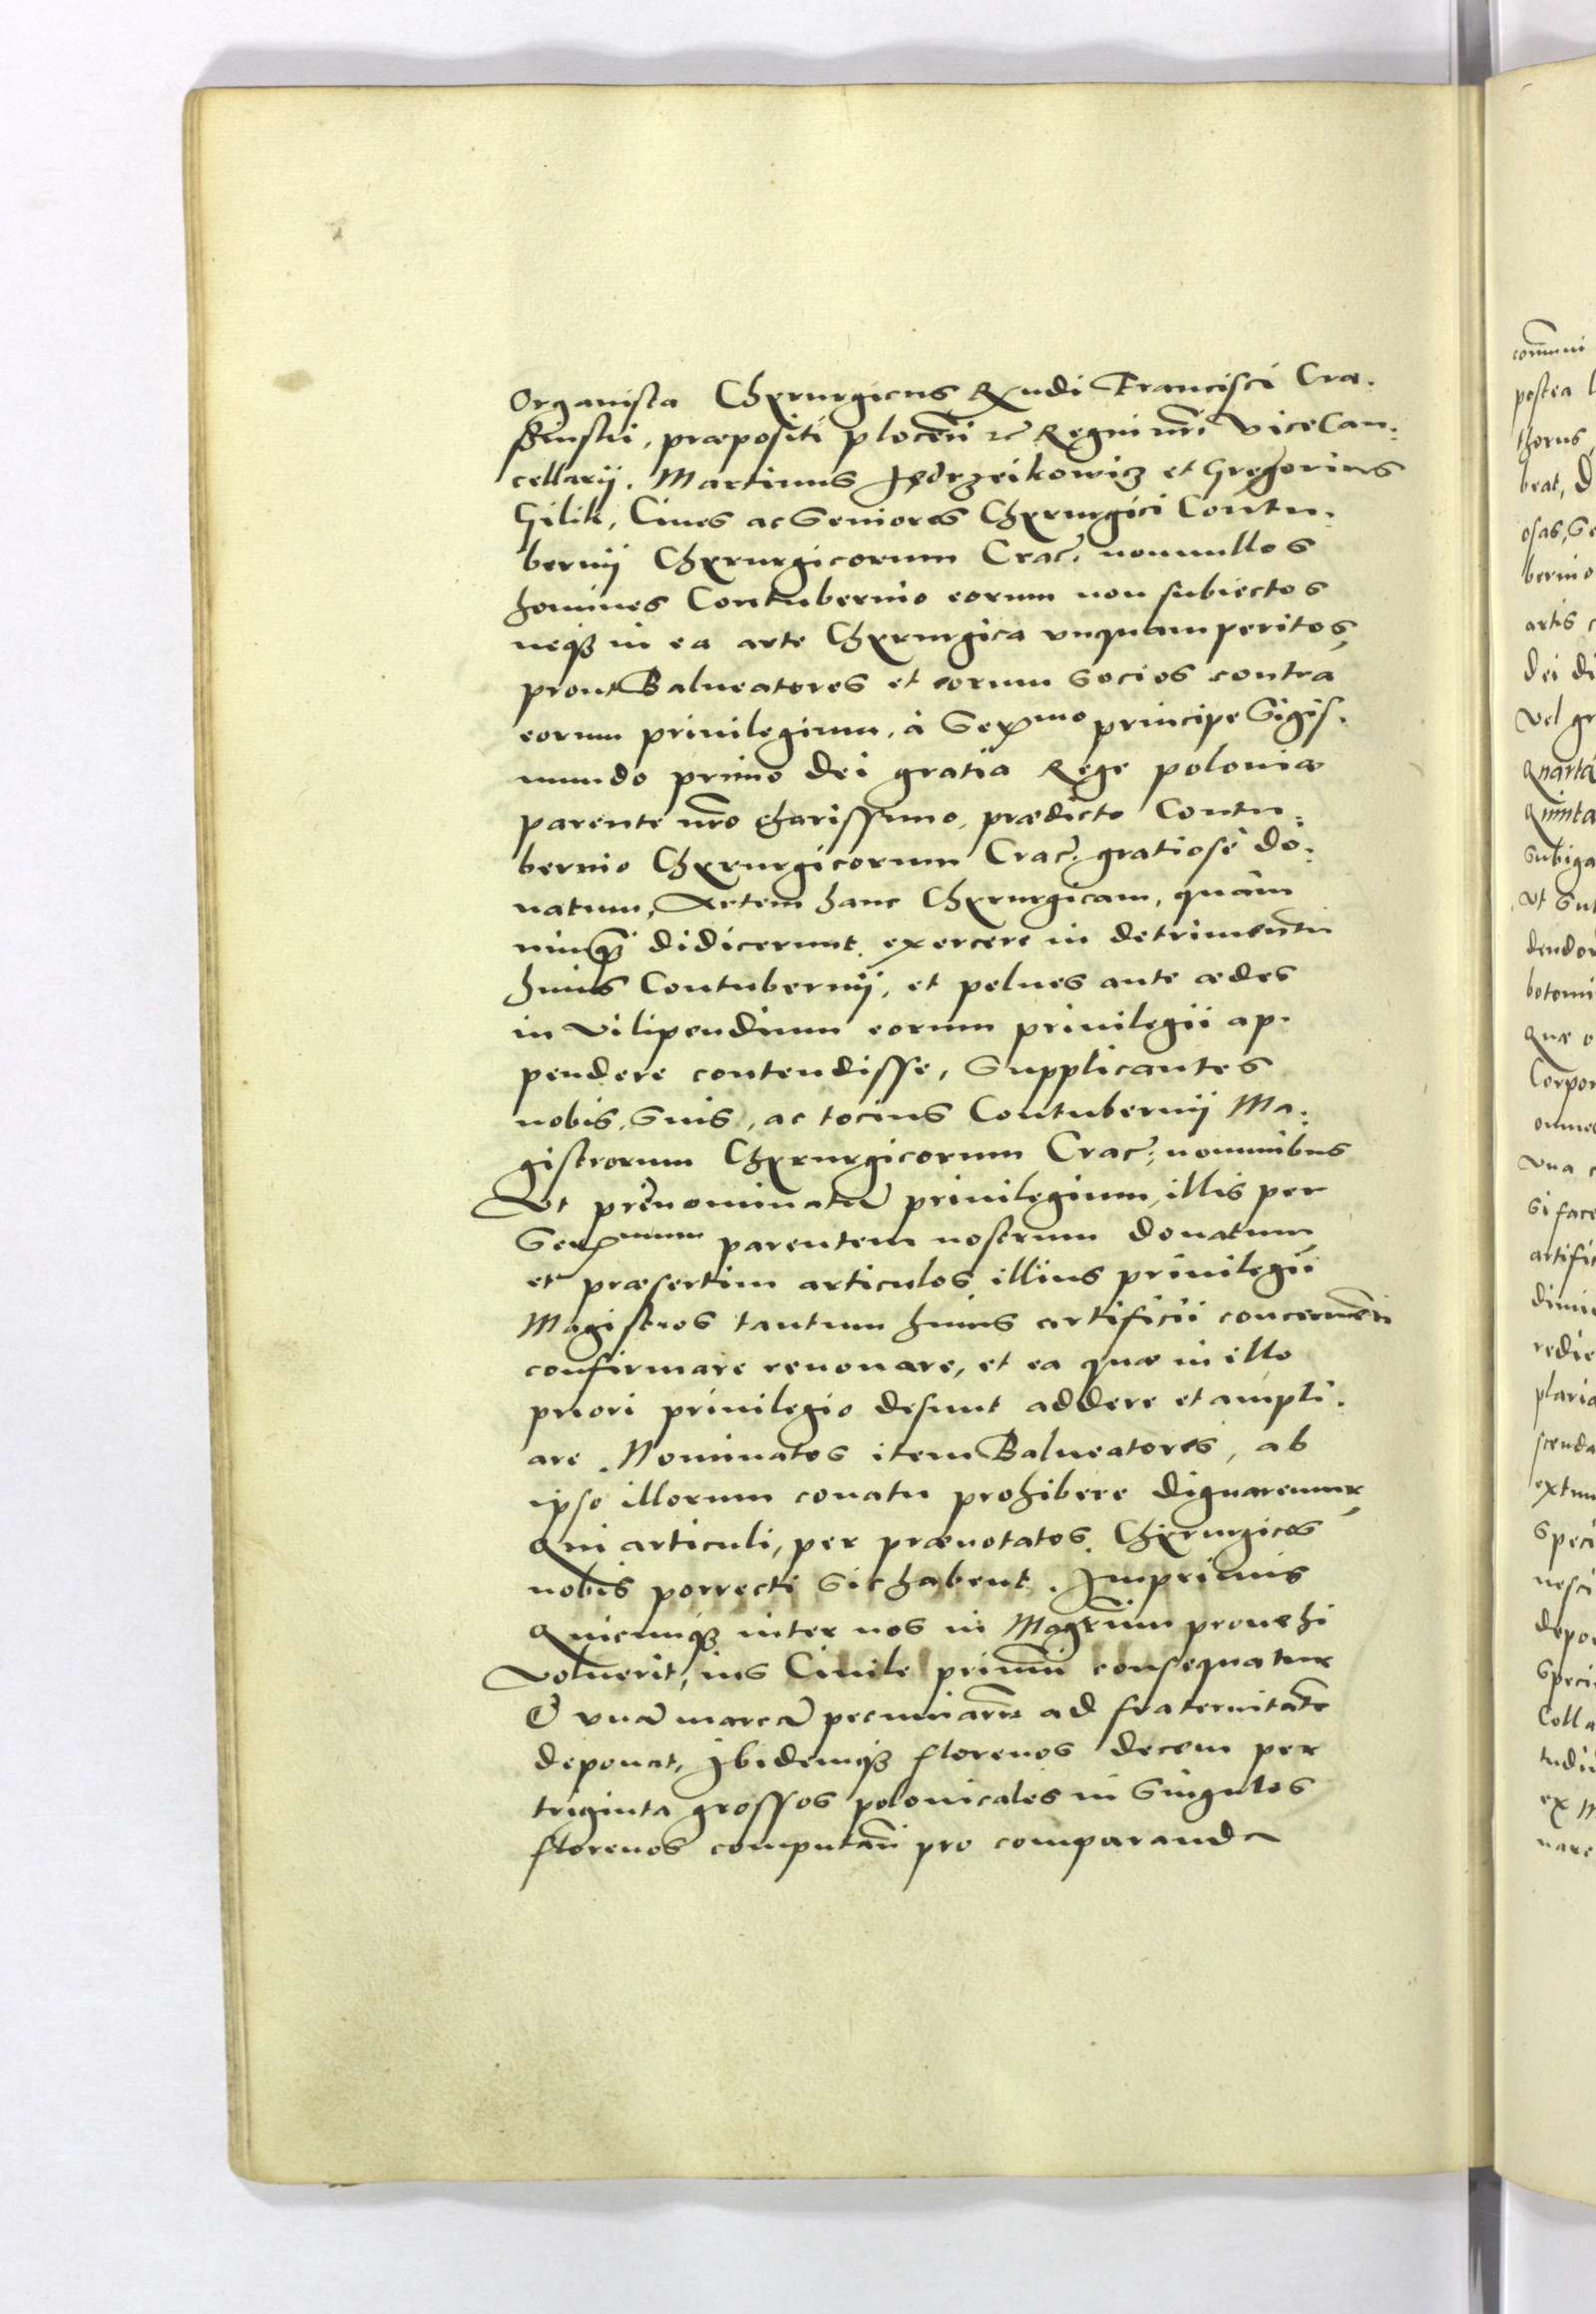 Organista Chyrurgicus Rxndi Francisci Cra-
ßinskii, præpositi plocen̄ etc Regni nr̄i ViceCan-
cellarij. Martinus Jędrzeikowicz et Gregorius
Gilik, Ciues ac Seniores Chyrurgici Contu-
bernij Chyrurgicorum Crac̄. nonnullos
homines Contubernio eorum non subiectos
neqꝫ in ea arte Chyrurgica vnquam peritos,
prout Balneatores et eorum Socios contra
eorum priuilegium, à Serᵐᵒ principe Sigis-
mundo primo dei gratia Rege poloniæ
parente nr̄o charissimo, prædicto Contu-
bernio Chyrurgicorum Crac̄. gratiosè do-
natum, Artem hanc Chyrurgicam, quam
nunqꝫ didicerunt exercere in detrimentū
huius Contubernij, et pelues ante ædes
in Vilipendium eorum priuilegii ap-
pendere contendisse, Supplicantes
nobis, Suis, ac tocius Contubernij Ma-
gistrorum Chyrurgicorum Crac̄. nominibus
Vt prænominatū priuilegium, illis per
Serᵐᵘᵐ parentem nostrum donatum,
et præsertim articulos illius priuilegii
Magistros tantum huius artificii concernen̄
confirmare renouare, et ea quæ in illo
priori priuilegio desunt addere et ampli-
are. Nominatos item Balneatores, ab
ipso illorum conatu prohibere dignaremur,
Qui articuli, per prænotatos Chyrurgicos
nobis porrecti Sic habent. Imprimis
Quicunqꝫ inter nos in Magr̄ium prouehi
Voluerit, ius Ciuile primū consequatur
Et vnā marcā pecuniarū ad fraternitatē
deponat, Ibidemqꝫ florenos decem per
triginta grossos polonicales in Singulos
florenos computan̄ pro comparanda